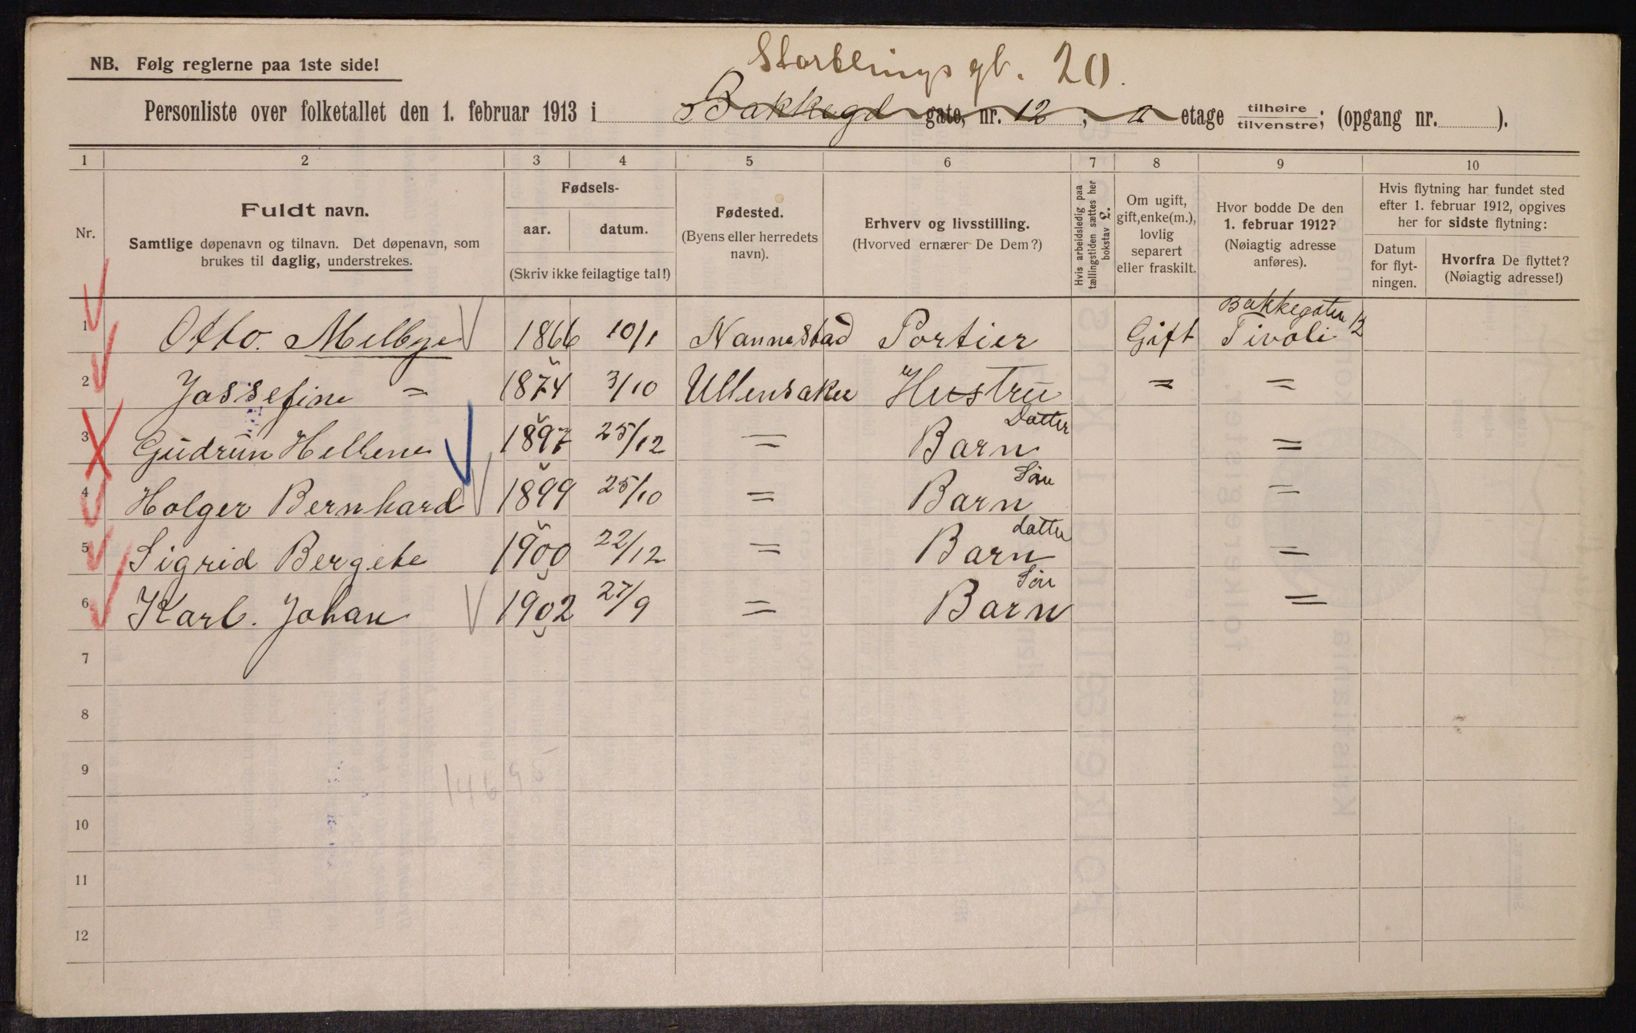 Storblings gt. 20.
NB. Følg reglerne paa 1ste side!
Personliste over folketallet den 1. februar 1913 i Bakkegd gate, nr. 12 ; etage tilhøire tilvenstre; (opgang nr. ).
1 2 3 4 5 6 7 8 9 10
Nr.
Fuldt navn.
Samtlige døpenavn og tilnavn. Det døpenavn, som
brukes til daglig, understrekes.
Fødsels-
aar. datum.
(Skriv ikke feilagtige tal!)
Fødested.
(Byens eller herredets
navn).
Erhverv og livsstilling.
(Hvorved ernærer De Dem?)
Hvis arbeidsledig paa
tællingstiden sættes her
bokstav L.
Om ugift,
gift, enke(m.),
lovlig
separert
eller fraskilt.
Hvor bodde De den
1. februar 1912?
(Nøiagtig adresse
anføres).
Hvis flytning har fundet sted
efter 1. februar 1912, opgives
her for sidste flytning:
Datum
for flyt-
ningen.
Hvorfra De flyttet?
(Nøiagtig adresse!)
Bakkegaten 12
1 Otto. Melbye 1866 10/1 Nannestad Portier Gift Tivoli
2 Jossefine = 1874 3/10 Ullensaker Hustru = =
Datter
3 Gudrun Hellene 1897 25/12 = Barn =
Søn
4 Holger Bernhard 1899 25/10 = Barn =
datter
5 Sigrid Bergete 1900 22/12 = Barn =
Søn
6 Karl. Johan 1902 27/9 = Barn =
7
8
9
10
11
12